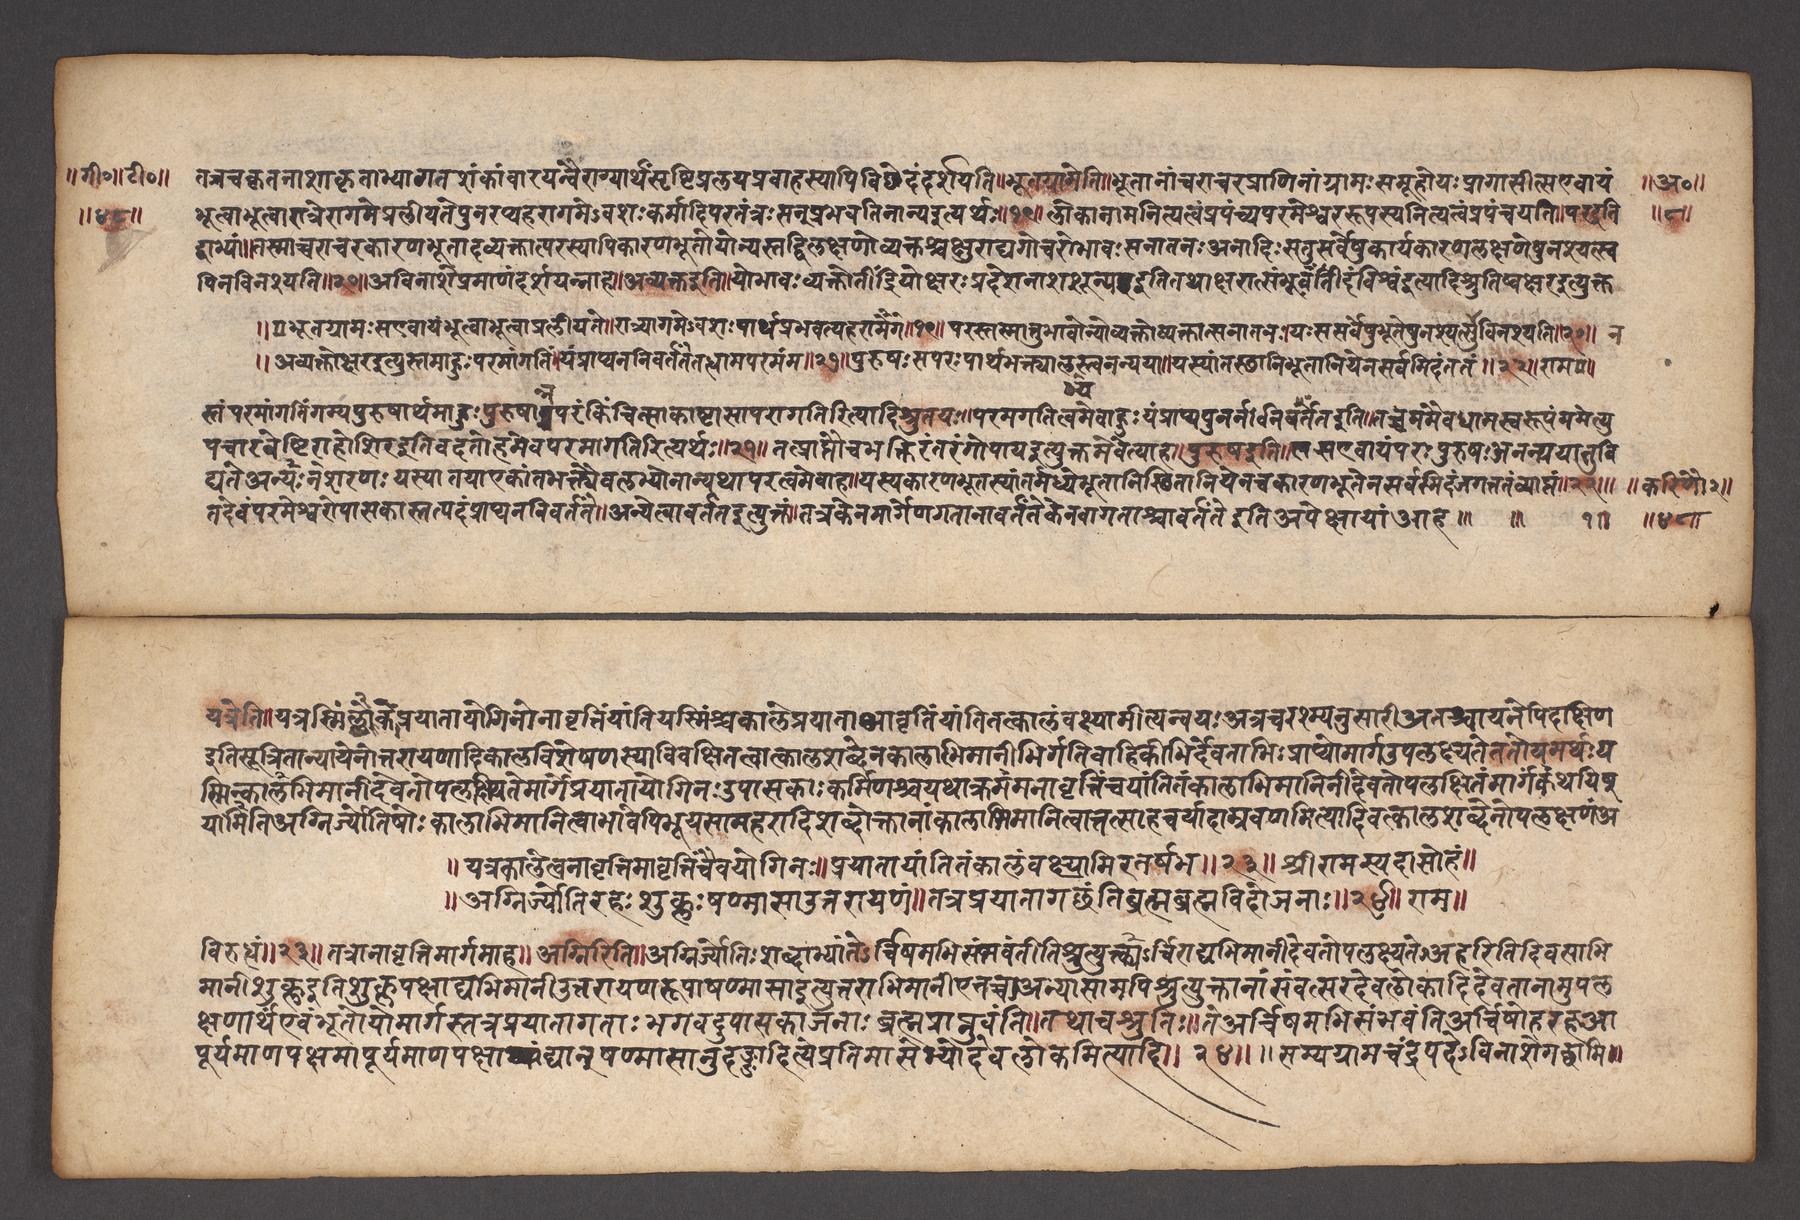 ॥गी०॥टी०॥ तत्रचकृतनाशाकृताभ्यागतशंकांवारयन्वैराग्यार्थंसृष्टिप्रलयप्रवाहस्यापिविछेदंदर्शयति॥भूतग्रामेति॥भूतानांचराचरप्राणिनांग्रामःसमूहोयःप्रागासीत्सएवायं ॥अ०॥
॥४८॥ भूत्वाभूत्वारात्रेरागमेप्रलीयतेपुनरप्यहरागमेऽवशःकर्मादिपरतंत्रःसन्प्रभवतिनान्यइत्यर्थः॥१९॥लोकानामनित्यत्वंप्रपंच्यपरमेश्वरस्वरूपस्यनित्यत्वंप्रपंचयति॥परइति ॥८॥
द्वाभ्यां॥तस्माच्चराचरकारणभूतादव्यक्तात्परस्यापिकारणभूतोयोन्यस्तद्विलक्षणोव्यक्तश्चक्षुराद्यगोचरोभावःसनातनःअनादिःसतुसर्वेषुकार्यकारणलक्षणेषुनश्यत्स्व
पिनविनश्यति॥२०॥अविनाशेप्रमाणंदर्शयन्नाह॥अव्यक्तइति॥योभावःव्यक्तोतींद्रियोक्षरःप्रवेशनाशशून्यइतितथाक्षरात्संभूवंतीदंविश्वंइत्यादिश्रुतिष्वक्षरइत्युक्त
॥ग्रभूतग्रामःसएवायंभूत्वाभूत्वाप्रलीयते॥रात्र्यागमेऽवशःपार्थप्रभवत्यहरागमे॥१९॥परस्तस्मात्तुभावोन्योव्यक्तोव्यक्तात्सनातनः॥यःससर्वेषुभूतेषुनश्यत्सुविनश्यति॥२०॥ न
॥अव्यक्तोक्षरइत्युक्तस्तमाहुःपरमांगतिं॥यंप्राप्यननिवर्ततेतद्धामपरमंमम॥२१॥पुरुषःसपरःपार्थभक्त्यालभ्यस्त्वनन्यया॥यस्यांतस्छानिभूतानियेनसर्वमिदंततं॥२२॥राम॥
स्तंपरमांगतिंगम्यपुरुषार्थमाहुःपुरुषान्नपरंकिंचित्साकाष्ठासापरागतिरित्यादिश्रुतयः॥परमगतित्वमेवाहुःयंप्राप्यपुनर्ननिवर्ततइति॥तच्चममैवधामस्वरूपंममेत्यु
पचारेषष्टिराहोशिरइतिवदतोहमेवपरमागतिरित्यर्थः॥२१॥तत्प्राप्तौचभक्तिरंतरंगोपायइत्युक्तमेवेत्याह॥पुरुषइति॥सएवायंपरःपुरुषःअनन्ययातुवि
द्यतेअन्यःनशरणःयस्यातयाएकांतभक्त्यैवलभ्योनान्यथापरत्वमेवाह॥यस्यकारणभूतस्यांतर्मध्येभूतानिस्थितानियेनचकारणभूतेनसर्वमिदंजगत्ततंव्याप्तं॥२२॥
तदेवंपरमेश्वरोपासकास्तत्पदंप्राप्यननिवर्तते॥अन्येत्वावर्ततइत्युक्तं॥तत्रकेनमार्गेणगतानावर्ततेकेनवागताश्चावर्ततेइतिअपेक्षायांआह॥ ॥ १॥ ॥४८॥
यत्रेति॥यत्रस्मिंकालेप्रयातायोगिनोनावृत्तिंयांतियस्मिंश्चकालेप्रयाताआवृत्तिंयांतितत्कालंवक्ष्यामीत्यन्वयःअत्रचरश्म्यनुसारीअतश्चायनेपिदक्षिण
इतिसूत्रितान्यायेनोत्तरायणादिकालविशेषणस्याविवक्षितत्वात्कालशब्देनकालाभिमानीभिर्गतिवाहिकीभिर्देवताभिःप्राप्योमार्गउपलक्ष्यतेततोयमर्थःय
स्मिन्कालभिमानीदेवतोपलक्षितेमार्गेप्रयातायोगिनःउपासकाःकर्मिणश्चयथाक्रममनावृत्तिंचयांतितंकालाभिमानिनीदेवतोपलक्षितंमार्गंकथयिषु
यामीतिअग्निर्ज्योतिषोःकालाभिमानित्वाभावेपिभूयसामहरादिशब्दोक्तानांकालाभिमानित्वात्तत्साहचर्यादाम्रवणमित्यादिवत्कालशब्देनोपलक्षणंअ
॥यत्रकालेत्वनावृत्तिमावृत्तिंचैवयोगिनः॥प्रयातायांतितंकालंवक्ष्यामिरतर्षभ॥२३॥श्रीरामस्यदासोहं॥
॥अग्निर्ज्योतिरहःशुक्लःषण्मासाउत्तरायणं॥तत्रप्रयातागछंतिब्रह्मब्रह्मविदोजनाः॥२४॥राम॥
विरुधं॥२३॥तत्रानावृत्तिमार्गमाह॥अग्निरिति॥अग्निर्ज्योतिःशब्दाभ्यांतेऽर्चिषमभिसंभवंतीतिश्रुत्युक्त्याऽर्चिराद्यभिमानीदेवतोपलक्ष्यतेअहरितिदिवसाभि
मानीशुक्लइतिशुक्लपक्षाद्यभिमानीउत्तरायणरूपाषण्मासाइत्युत्तराभिमानीएतच्चअन्यासामपिश्रुत्युक्तानांसंवत्सरदेवलोकादिदेवतानामुपल
क्षणार्थंएवंभूतोयोमार्गस्तत्रप्रयातागताःभगवदुपासकाजनाःब्रह्मप्राप्नुवंति॥तथाचश्रुतिः॥तेअर्च्चिषमभिसंभवंतिअर्चिषोहरह्नआ
पूर्यमाणपक्षमापूर्यमाणपक्षाद्यान्षण्मासानुदङ्ङादित्येप्रतिमासेभ्योदेवलोकमित्यादि॥२४॥॥